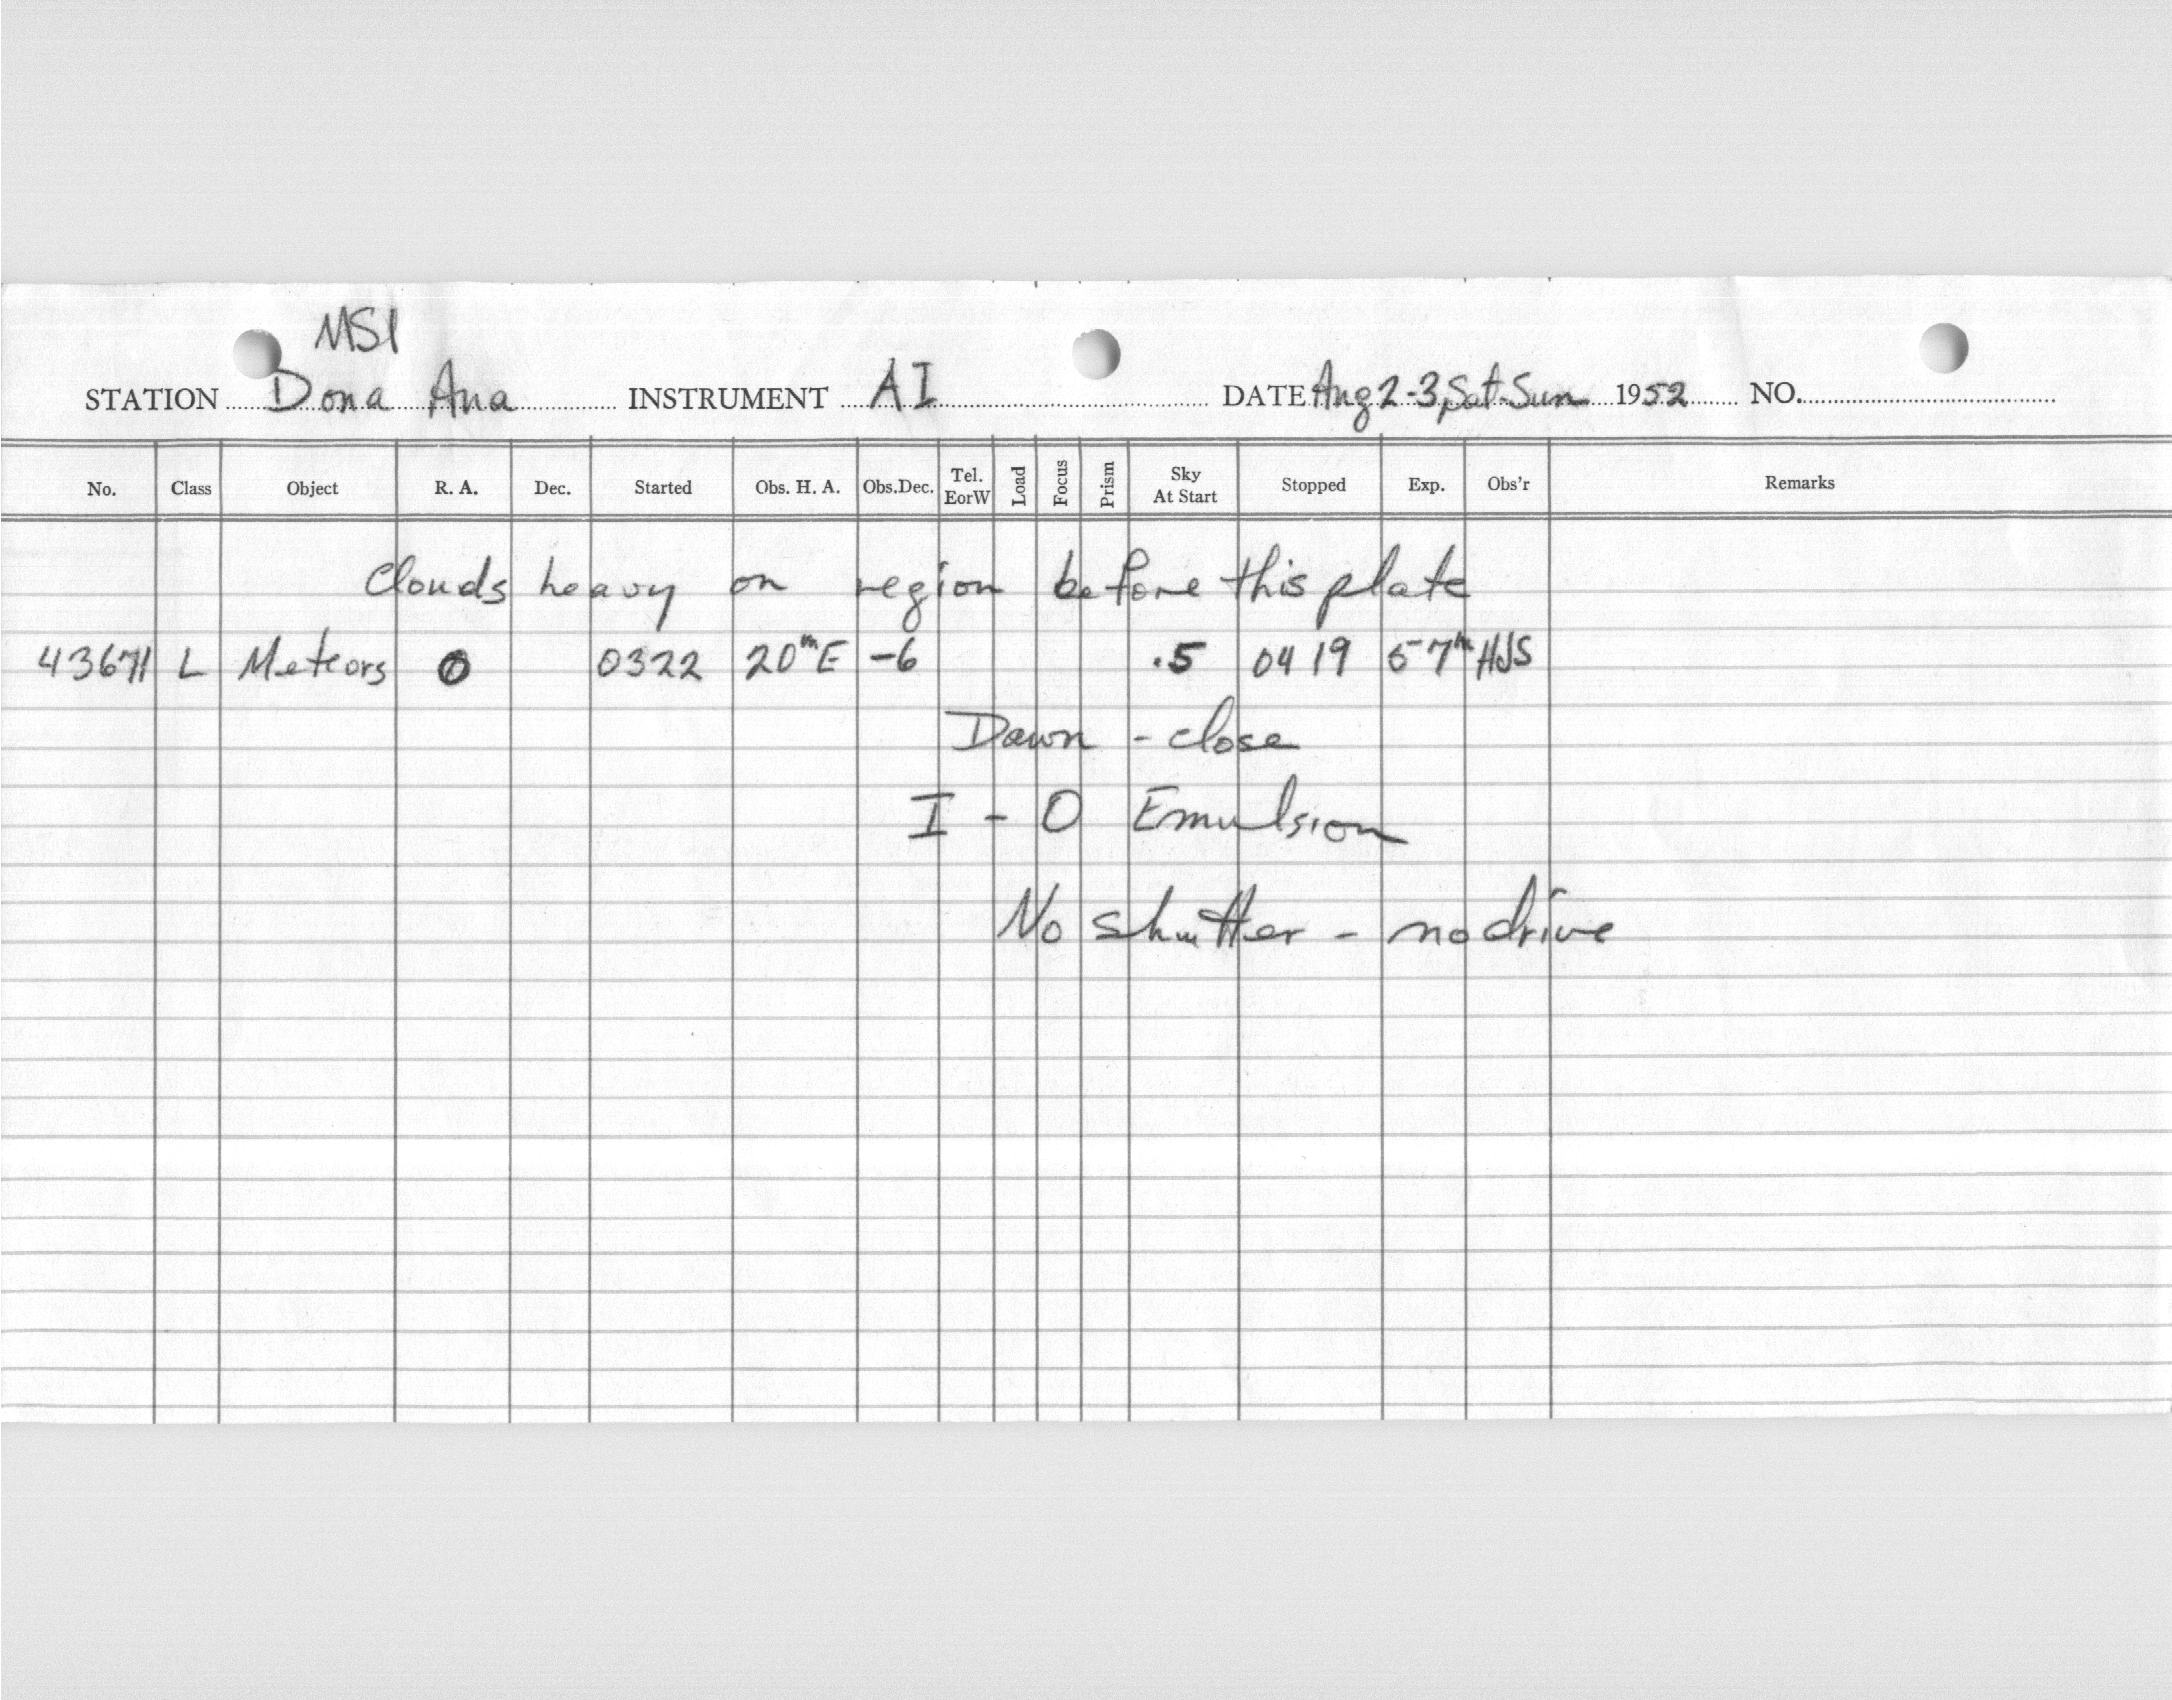 MSI
STATION Dona Ana INSTRUMENT AI DATE Aug 2-3, Sat-Sun 1952 NO.
No. Class Object R. A. Dec. Started Obs. H. A. Obs.Dec. Tel. EorW Load Focus Prism Sky At Start Stopped Exp. Obs'r Remarks
Clouds heavy on region before this plate
43671 L Meteors 0 0322 20ᵐE -6 .5 0419 57ᵐ HJS
Dawn - close
I - O Emulsion
No shutter - no drive